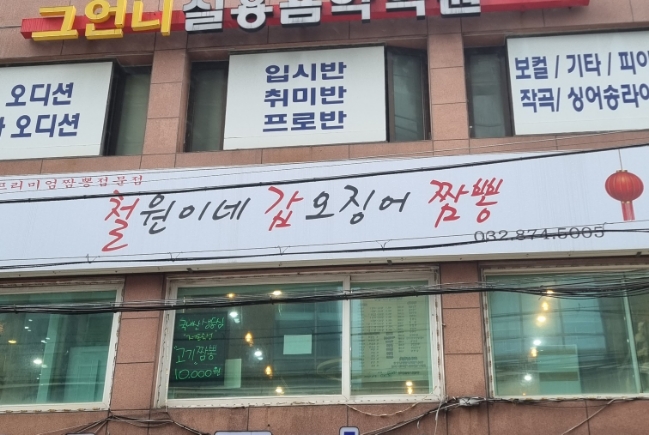 그언니실용음악학원
오디션
오디션
입시반
취미반
프로반
보컬 / 기타 / 피아
작곡 / 싱어송라이
프리미엄짬뽕전문점
철원이네 갑오징어 짬뽕
032.874.5005
고기짬뽕
10,000원